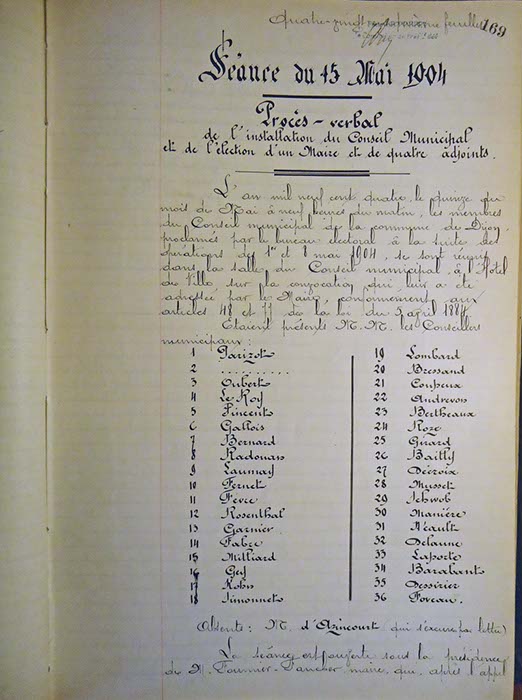 169
Séance du 15 Mai 1904
Procès-verbal
de l'installation du Conseil Municipal
et de l'élection d'un Maire et de quatre adjoints.
L'an mil neuf cent quatre, le quinze du
mois de Mai à neuf heures du matin, les membres
du Conseil municipal de la commune de Dijon,
proclamés par le bureau électoral à la suite des
opérations des 1er et 8 mai 1904, se sont réunis
dans la salle du Conseil municipal, à l'Hôtel
de Ville, sur la convocation qui leur a été
adressée par le Maire, conformément aux
articles 48 et 77 de la loi du 5 avril 1884.
Étaient présents M.M. les Conseillers
municipaux :
1 Parizot
2 ..........
3 Oubert
4 Le Roy
5 Pincents
6 Gallois
7 Bernard
8 Radouan
9 Launay
10 Fernet
11 Fèvre
12 Rosenthal
13 Garnier
14 Fabre
15 Milliard
16 Gey
17 Kohn
18 Simonnet
19 Lombard
20 Bressand
21 Coupeux
22 Andrevon
23 Bertheaux
24 Roze
25 Girard
26 Bailly
27 Décroix
28 Musset
29 Schwob
30 Manière
31 Néault
32 Delaune
33 Laporte
34 Barabant
35 Dessirier
36 Foveau.
(Absents : M. d'Azincourt qui s'excuse par lettre)
La séance est ouverte sous la présidence
de M. Fournier, ancien maire, qui, après l'appel